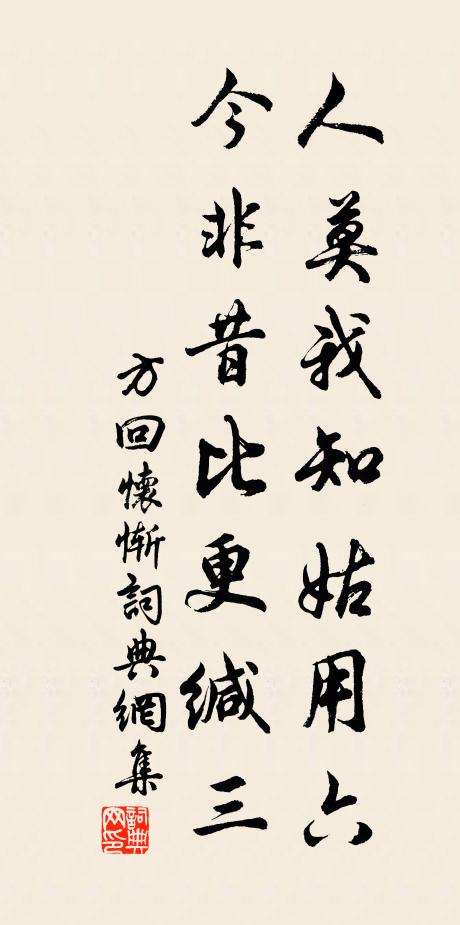 人莫我知姑用六
今非昔比更缄三
方回懷慚詞典網集
詞典网印